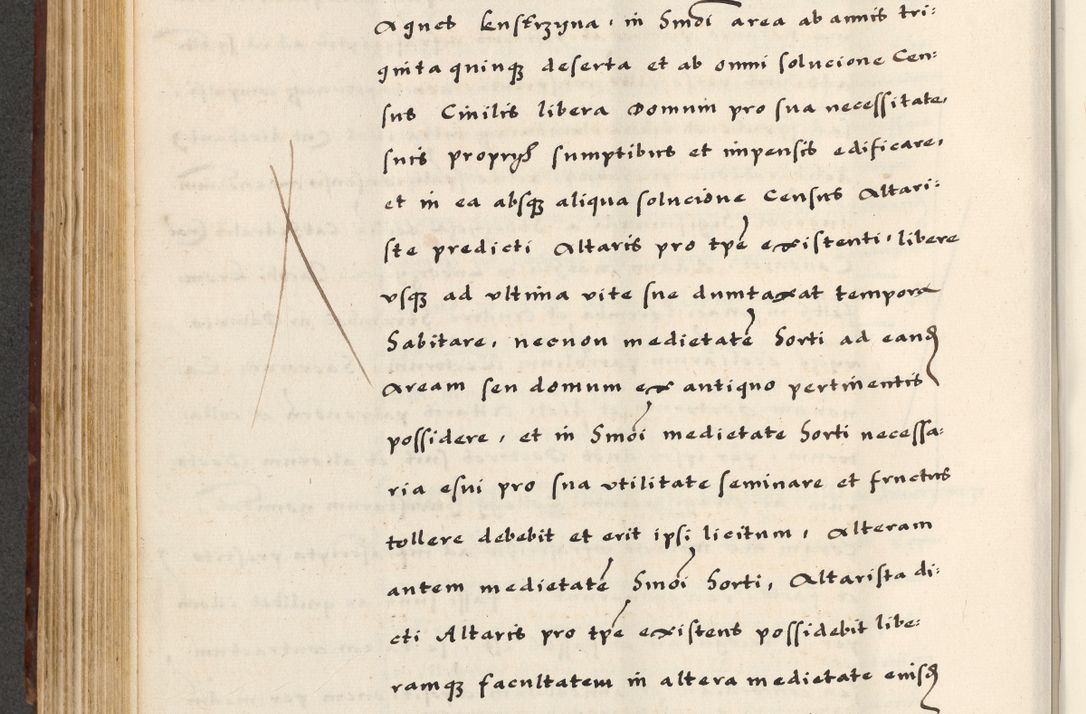 Agnes kenskrzyna, in hmõi area ab annis tri:
ginta quinqꝫ deserta et ab omni solucione Cen:
sus Ciuilis libera Domum pro sua necessitate,
suis proprys sumptibus et impensis edificare,
et in ea absqꝫ aliqua solucione Census Altari:
ste predicti Altaris pro tpẽ existenti, libere
vsqꝫ ad ultima vite sue dumtaxat tempora
habitare, necnon medietatẽ horti ad eand
Aream seu domum ex antiquo pertinentis
possidere, et in hmõi medietate horti necessa:
ria esui pro sua vtilitate seminare et fructus
tollere debebit et erit ipsi licitum, Alteram
autem medietatẽ hmõi horti, Altarista di:
cti Altaris pro tpẽ existens possidebit libe:
ramqꝫ facultatem in altera medietate eiusd